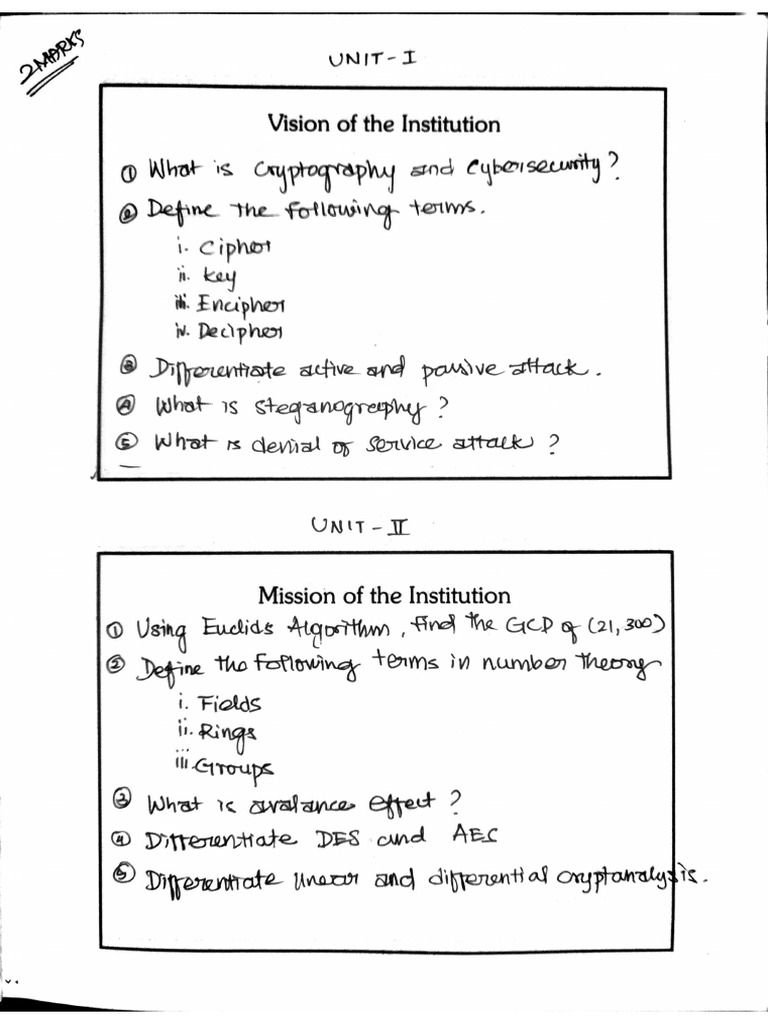 2 MARKS
UNIT - I
Vision of the Institution
① What is cryptography and Cybersecurity?
② Define the following terms.
i. Cipher
ii. Key
iii. Encipher
iv. Decipher
③ Differentiate active and passive attack.
④ What is steganography?
⑤ What is denial of service attack?
UNIT - II
Mission of the Institution
① Using Euclids Algorithm, find the GCD of (21, 300)
② Define the following terms in number theory
i. Fields
ii. Rings
iii. Groups
③ What is avalance effect?
④ Differentiate DES and AES
⑤ Differentiate linear and differential cryptanalysis.